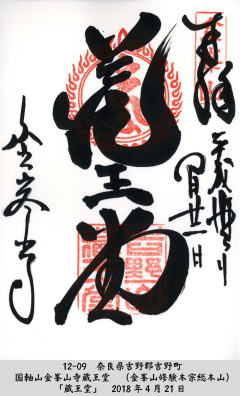 奉拝
蔵王堂
金峯山寺
12-09　奈良県吉野郡吉野町
国軸山金峯山寺蔵王堂　（金峯山修験本宗総本山）
「蔵王堂」　2018年4月21日